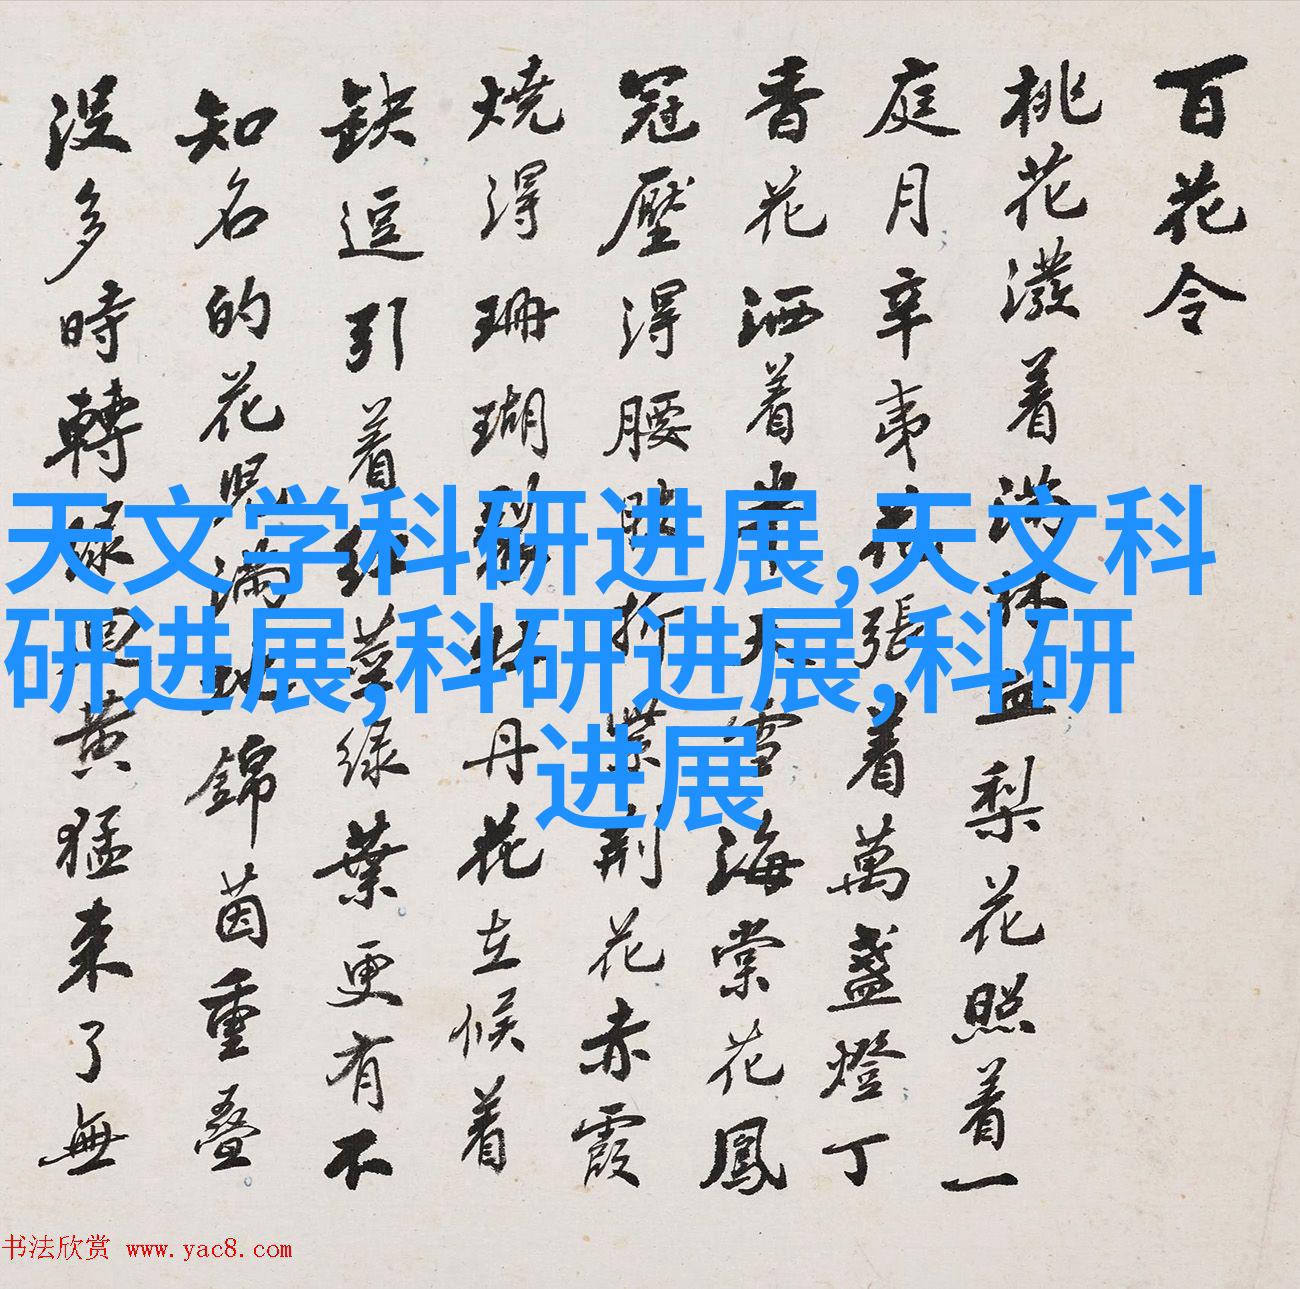 百花令
桃花潑着滿林血梨花照着一
庭月辛夷花張着萬盞燈丁
香花洒着半天雪海棠花鳳
冠壓得腰折紫荊花赤霞
燒得珊瑚裂牡丹花立候着
缺逗引着紅萼緑葉更有不
知名的花兒滿地錦茵重疊
没多時轉緑回黃猛来了無
天文学科研进展,天文科
研进展,科研进展,科研
进展
书法欣赏 www.yac8.com